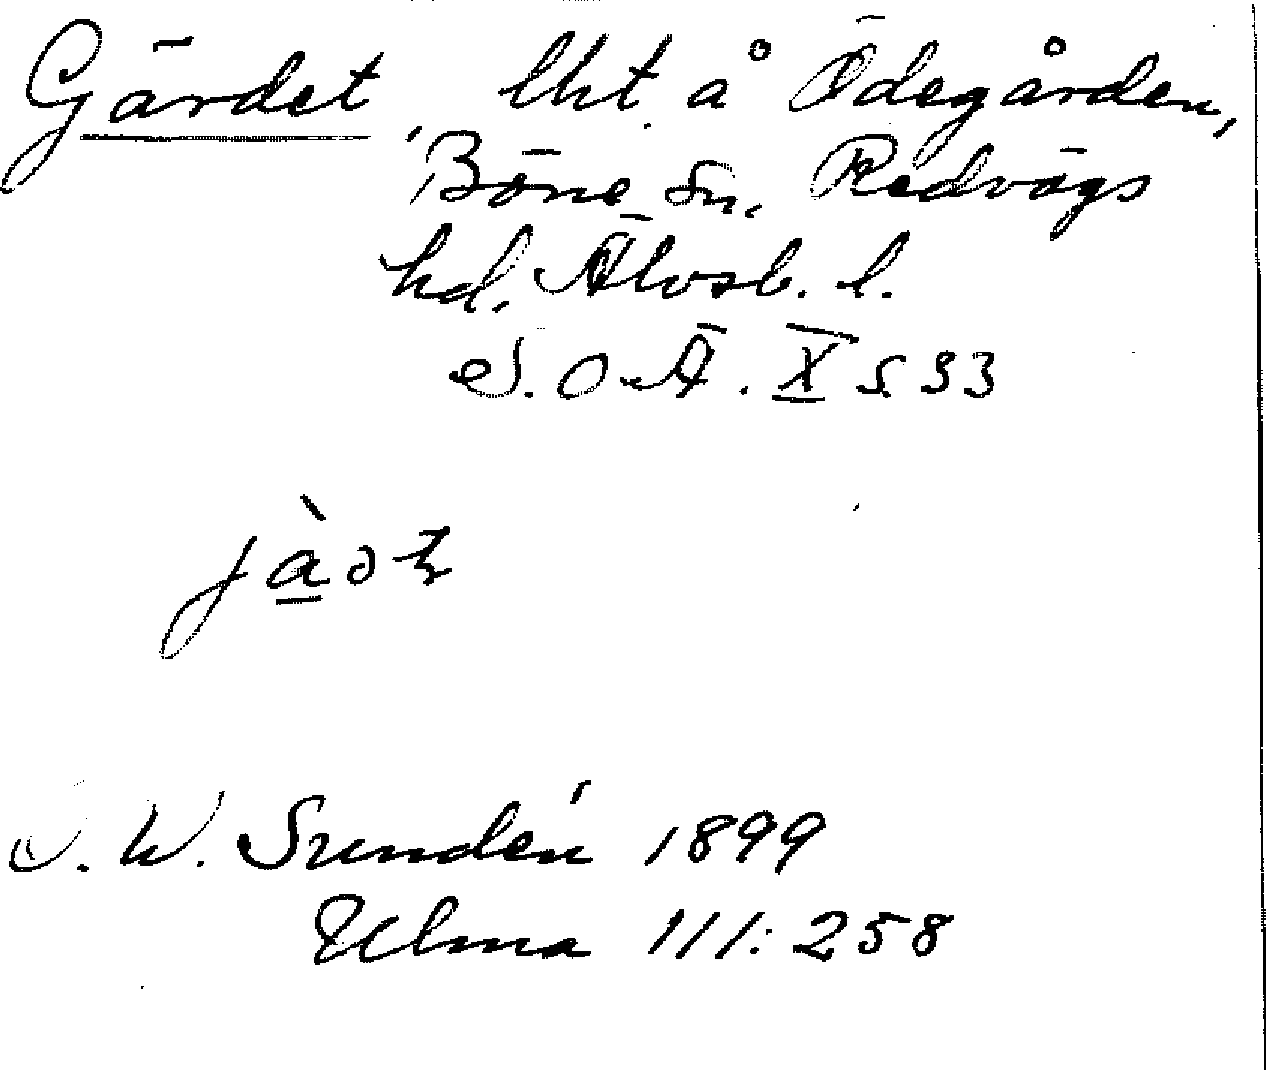 Gärdet lht å Ödegården,
Böne sn, Redvägs
hd, Älvsb. l.
S. O. Ä. X s 93
D. W. Sundén 1899
Ulma 111:258